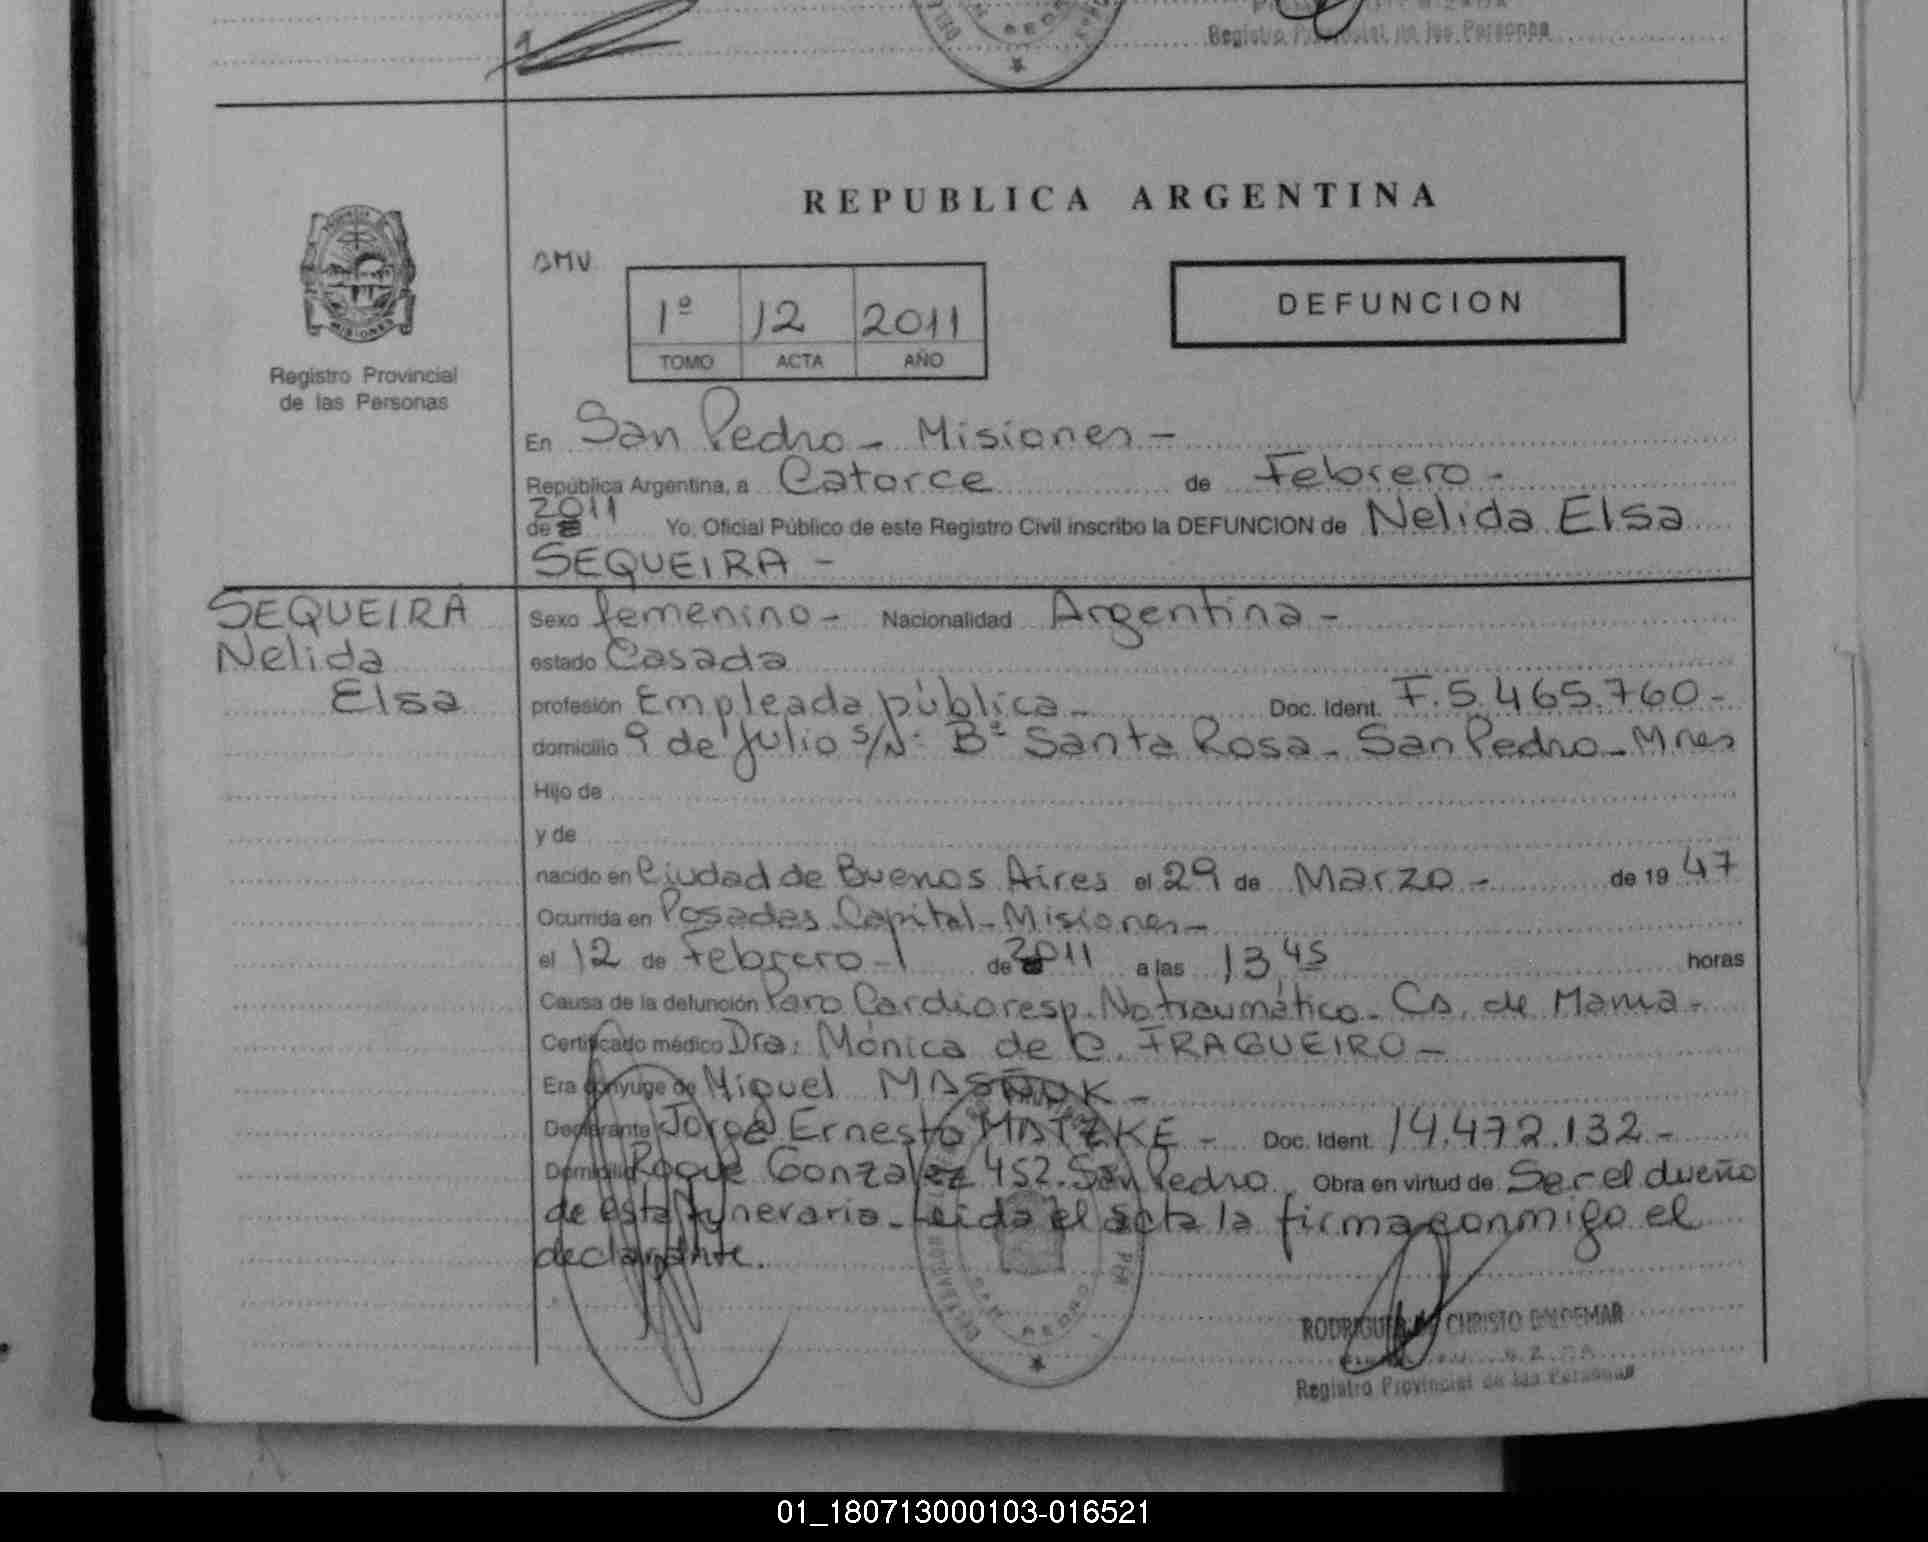 Registro Provincial de las Personas
REPUBLICA ARGENTINA
MISIONES
Registro Provincial
de las Personas
BMV
1º 12 2011
TOMO ACTA AÑO
DEFUNCION
En San Pedro - Misiones -
República Argentina, a Catorce de Febrero -
2011
de Yo, Oficial Público de este Registro Civil inscribo la DEFUNCION de Nelida Elsa
SEQUEIRA -
SEQUEIRA
Nelida
Elsa
Sexo femenino - Nacionalidad Argentina -
estado Casada
profesión Empleada pública - Doc. Ident. F. 5.465.760 -
domicilio 9 de Julio s/Nº Bº Santa Rosa - San Pedro - Mnes
Hijo de
y de
nacido en Ciudad de Buenos Aires el 29 de Marzo - de 19 47
Ocurrida en Posadas Capital - Misiones -
el 12 de Febrero - de 2011 a las 13 45 horas
Causa de la defunción Paro Cardioresp. No traumático - Ca. de Mama -
Certificado médico Dra. Mónica de C. FRAGUEIRO -
Era conyuge de Miguel -
Declarante Jorge Ernesto MATZKE - Doc. Ident. 14.472.132 -
Domicilio Roque Gonzalez 452. San Pedro. Obra en virtud de Ser el dueño
de esta funeraria - Leida el acta la firma conmigo el
declarante.
RODRIGUEZ CHRISTO
Registro Provincial de las Personas
01_180713000103-016521